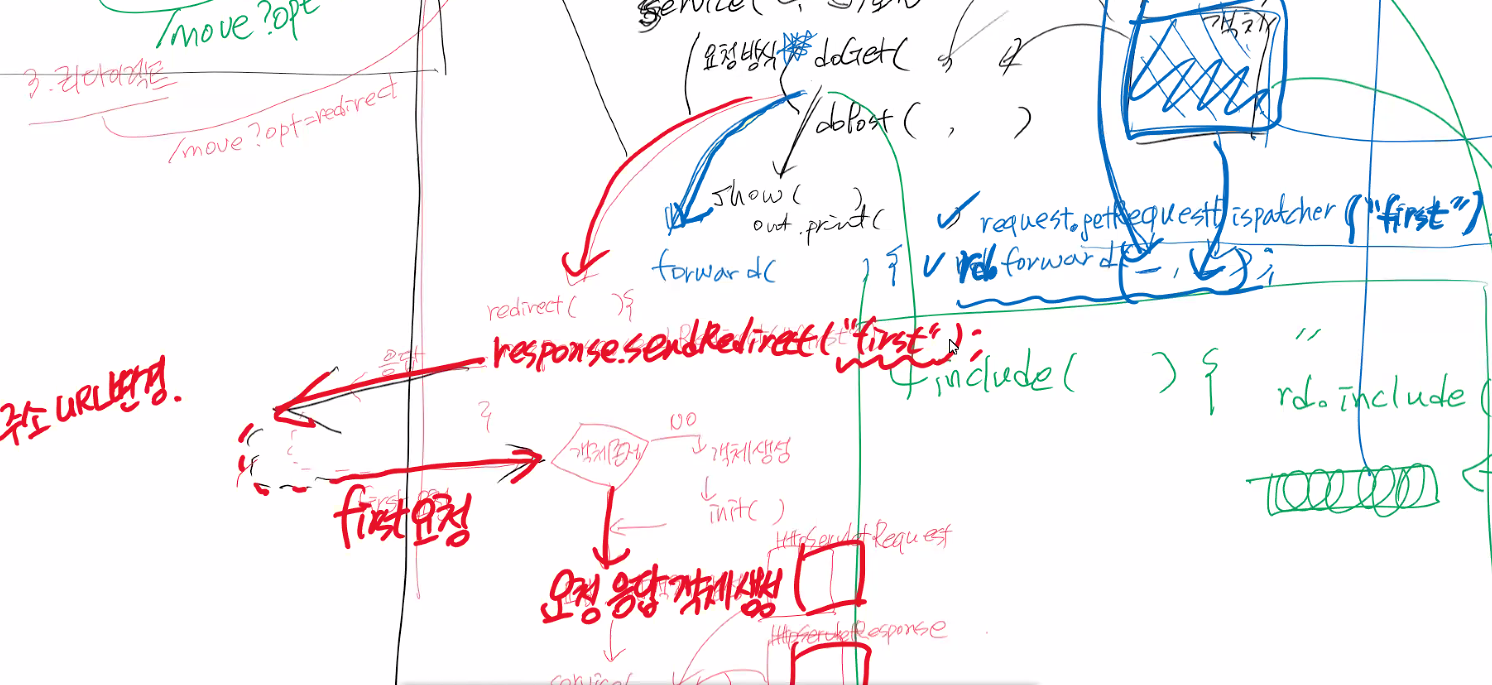 /move?opt
3. 리다이렉트
/move?opt=redirect
service(
요청방식
doGet( , )
doPost ( , )
객체
show( )
out.print(
forward( ) {
✓ request.getRequestDispatcher ("first")
✓ rd.forward( , );
redirect( ){
response.sendRedirect("first");
응답
주소 URL변경.
}
include( ) {
rd.include (
객체존재
NO
객체생성
init( )
first 요청
HttpServletRequest
요청 응답 객체생성
HttpServletResponse
service(